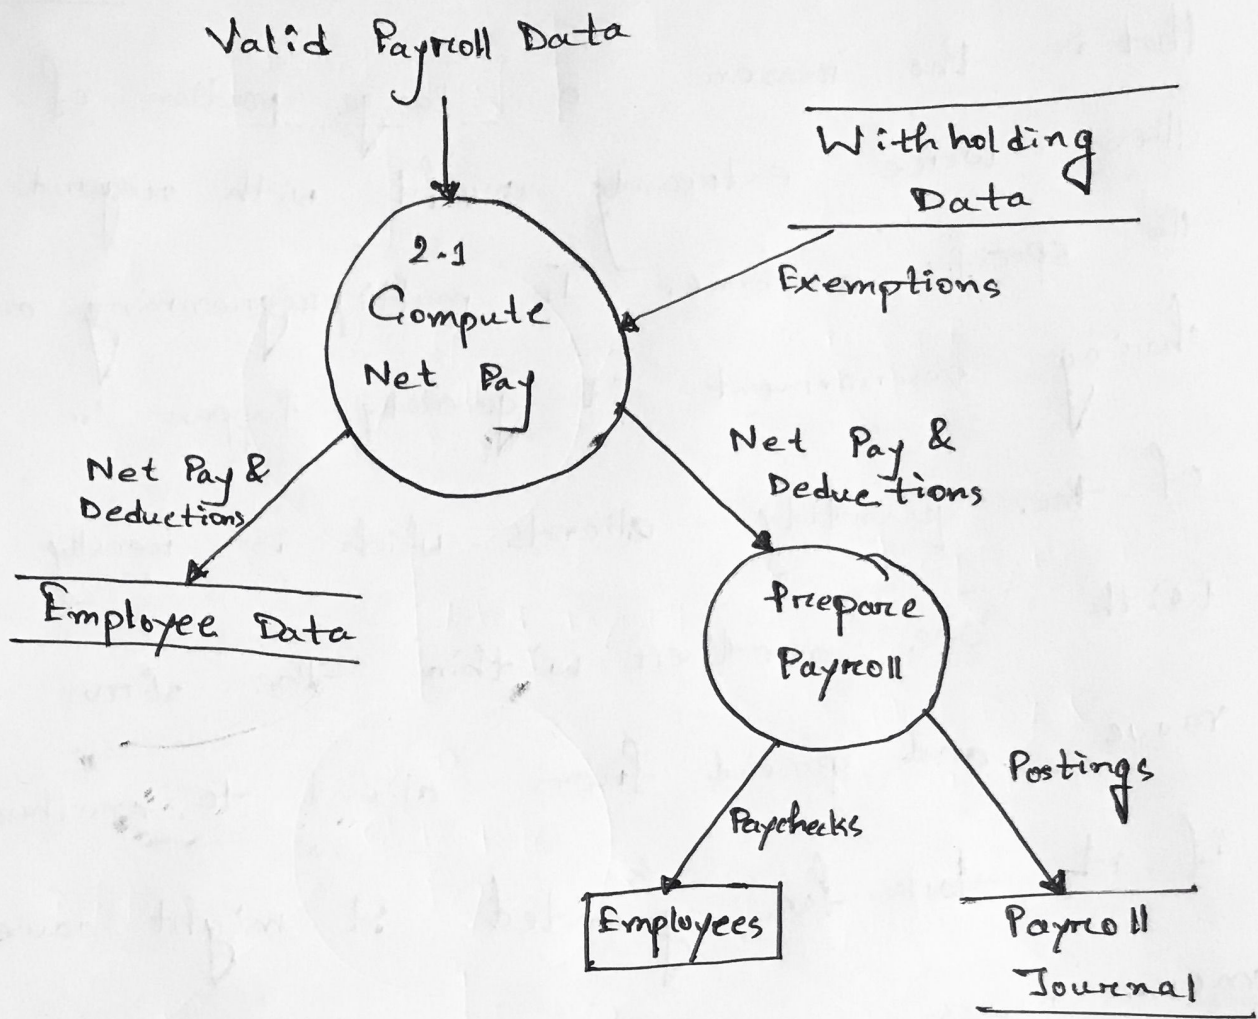 Valid Payroll Data
Withholding
Data
2.1
Compute
Net Pay
Exemptions
Net Pay &
Deductions
Net Pay &
Deductions
Employee Data
Prepare
Payroll
Paychecks
Postings
Employees
Payroll
Journal